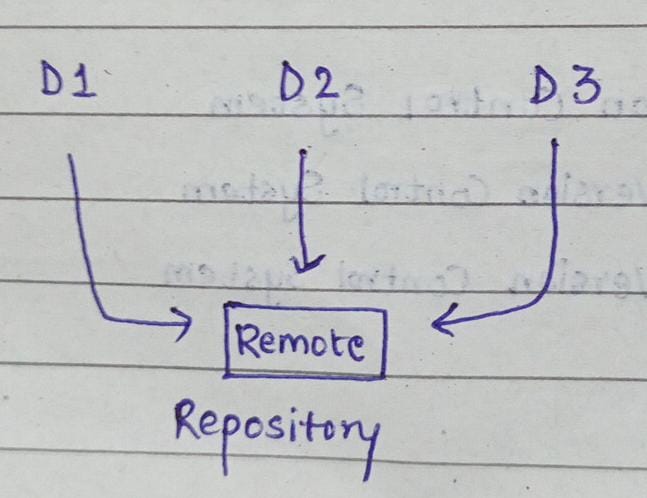 D1 D2 D3
Remote
Repository